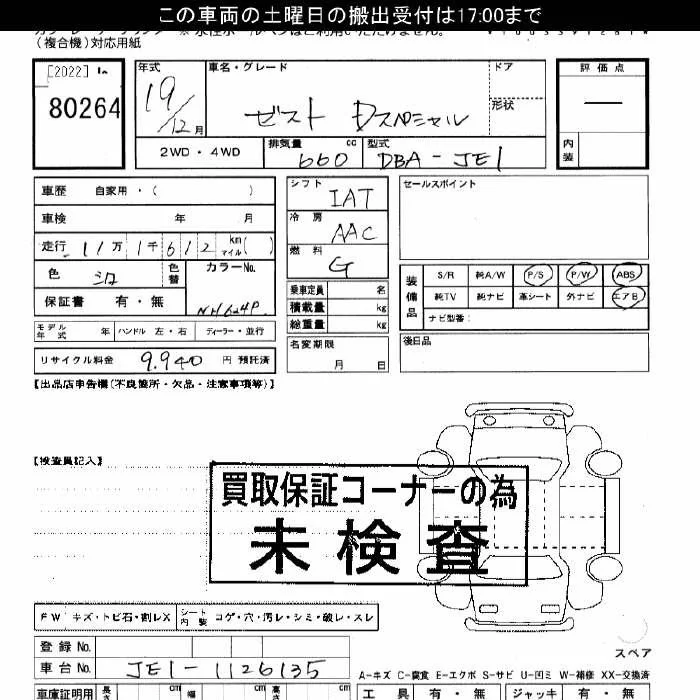 この車両の土曜日の搬出受付は17:00まで
(複合機)対応用紙
[2022]
80264
年式
19/12月
車名・グレード
ゼスト Dスペシャル
ドア
形状
評価点
—
内装
2WD・4WD
排気量 660 cc
型式 DBA-JE1
車歴 自家用・( )
車検 年 月
走行 11万1千612 km マイル( )
色 シロ
色替
カラーNo. NH624P
保証書 有・無
シフト IAT
冷房 AAC
燃料 G
乗車定員 名
積載量 kg
総重量 kg
セールスポイント
装備品
S/R 純A/W P/S P/W ABS
純TV 純ナビ 革シート 外ナビ エアB
ナビ型番:
モデル年式 年 ハンドル 左・右 ディーラー・並行
リサイクル料金 9.940 円 預託済
名変期限 月 日
後日品
【出品店申告欄(不良箇所・欠品・注意事項等)】
【検査員記入】
買取保証コーナーの為
未検査
FW キズ・トビ石・割レX
シート内装 コゲ・穴・汚レ・シミ・破レ・スレ
スペア
登録No.
車台No. JE1-1126135
A-キズ C-腐食 E-エクボ S-サビ U-凹ミ W-補修 XX-交換済
車庫証明用 長さ cm 幅 cm 高さ cm
工具 有・無 ジャッキ 有・無